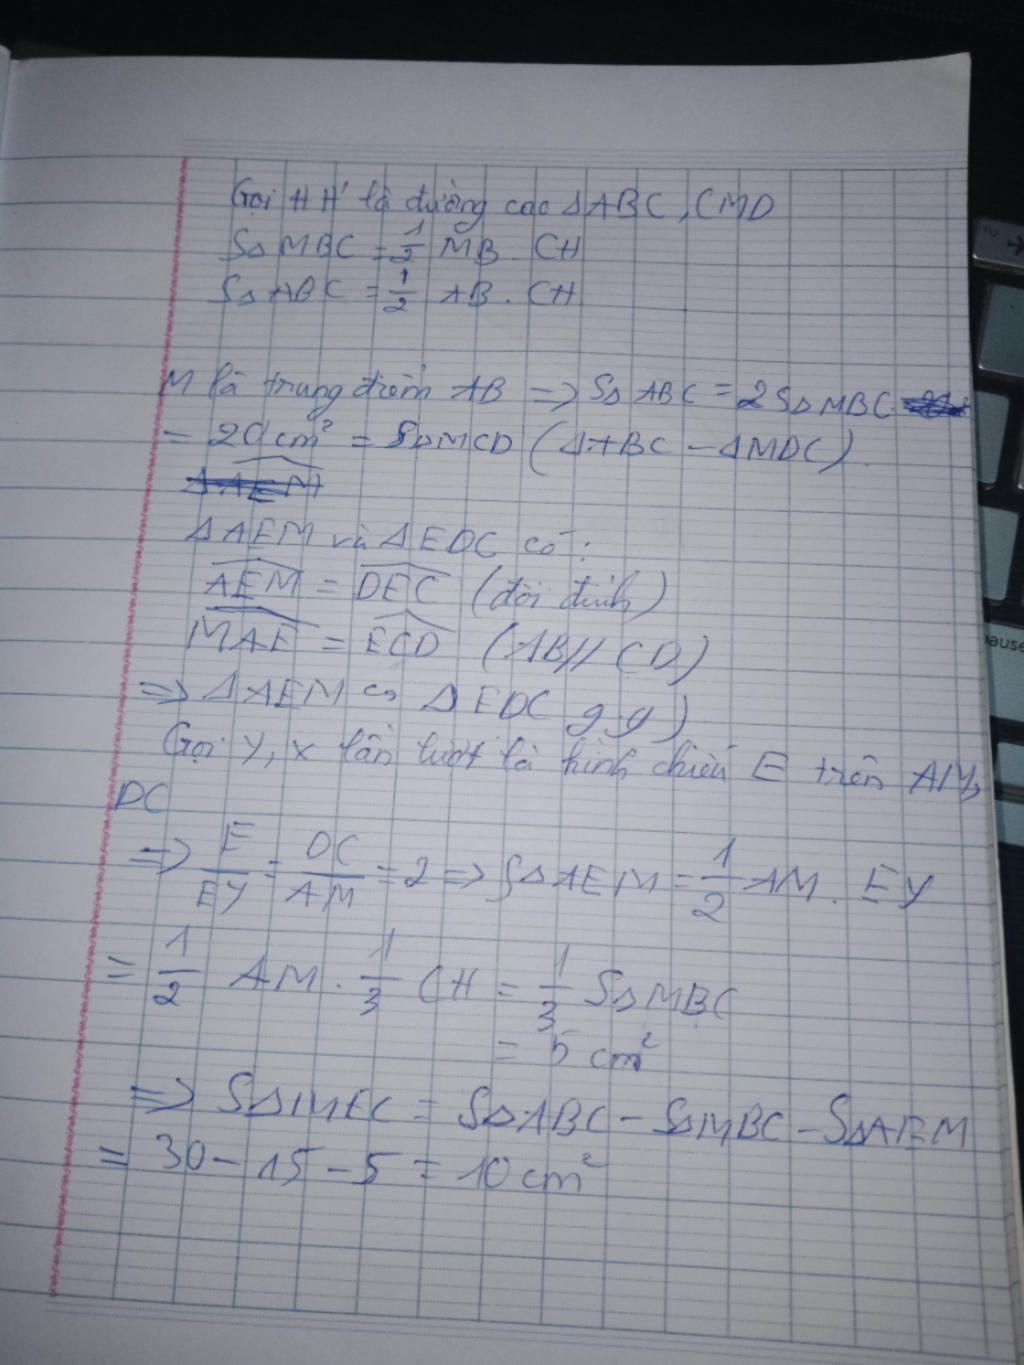 Gọi HH' là đường cao ΔABC, CMD
SΔMBC = 1/2 MB. CH
SΔABC = 1/2 AB. CH
M là trung điểm AB => SΔABC = 2SΔMBC
= 20cm² = SΔMCD (ΔABC - ΔMDC).
ΔAEM
ΔAEM và ΔEDC có:
AEM = DEC (đối đỉnh)
MAE = ECD (AB// CD)
=> ΔAEM ∽ ΔEDC g.g)
Gọi Y, X lần lượt là hình chiếu E trên AM,
DC
=> E/EY = DC/AM = 2 => SΔAEM = 1/2 AM. EY
= 1/2 AM. 1/3 CH = 1/3 SΔMBC
= 5 cm²
=> SΔMEC = SΔABC - SΔMBC - SΔAEM
= 30 - 15 - 5 = 10 cm²